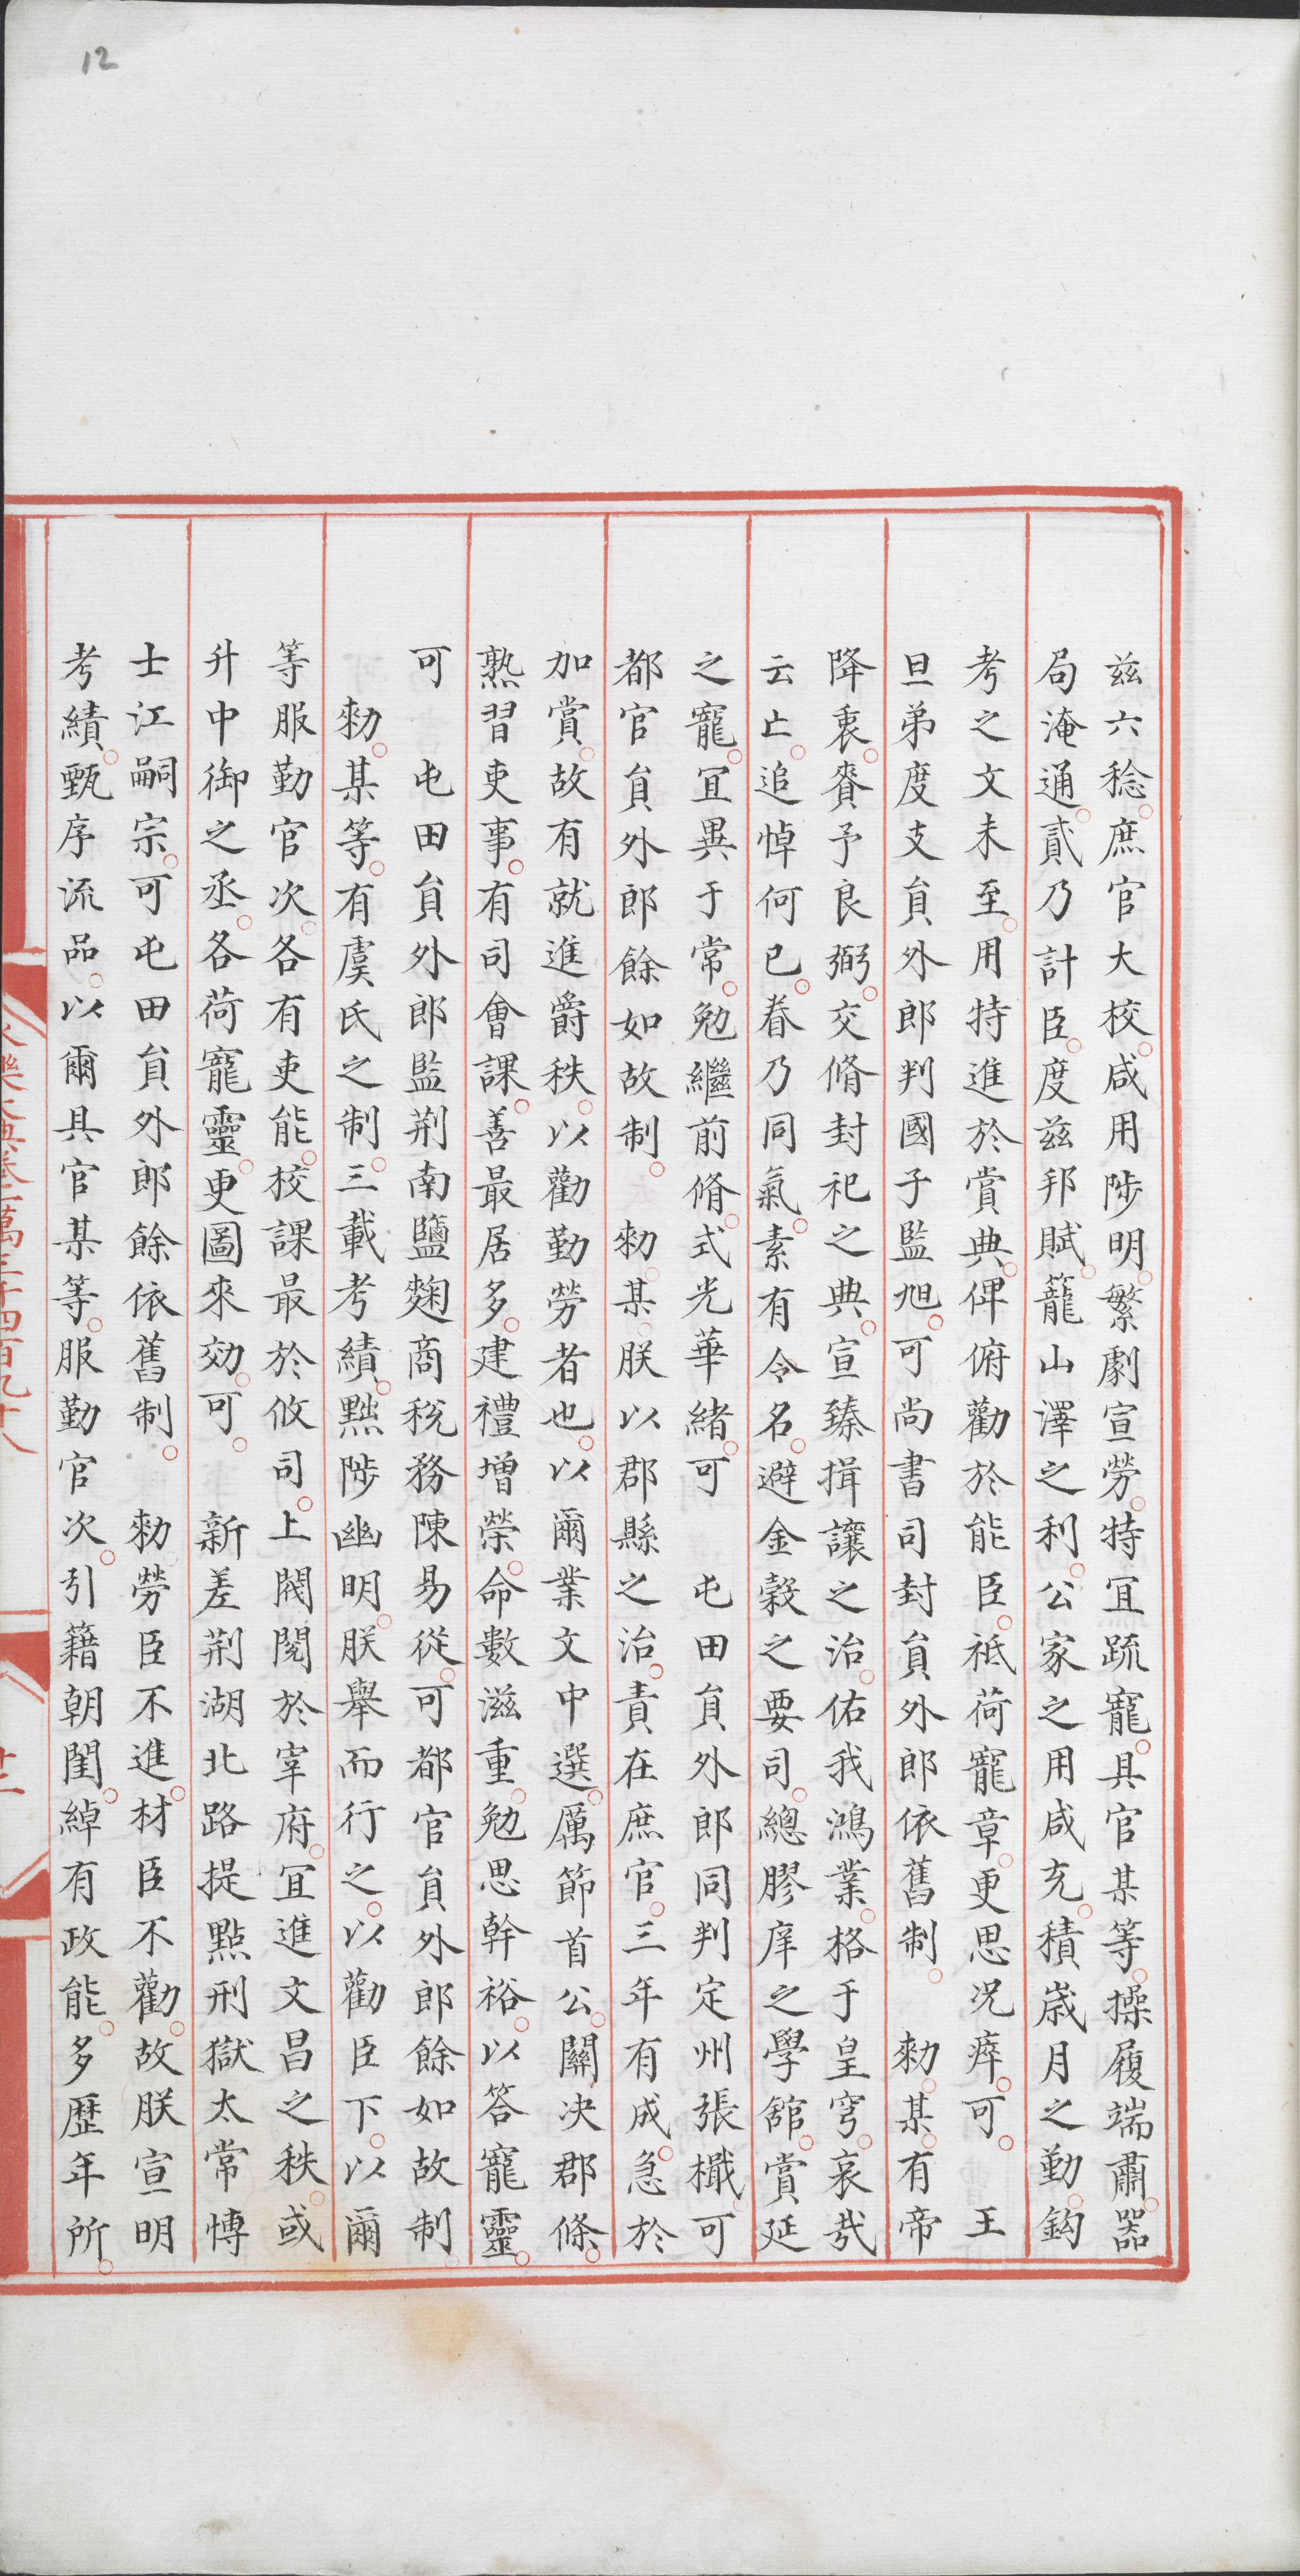 12
兹六稔。庶官大校。咸用陟明。繁劇宣勞。特宜疏寵。具官某等。操履端肅。器
局淹通。貳乃計臣。度兹邦賦。籠山澤之利。公家之用咸充。積歲月之勤。鈎
考之文未至。用特進於賞典。俾俯勸於能臣。祗荷寵章。更思况瘁。可。　王
旦弟度支員外郎判國子監旭。可尚書司封員外郎依舊制。　勑。某。有帝
降衷。賚予良弼。交脩封祀之典。宣臻揖讓之治。佑我鴻業。格于皇穹。哀哉
云亡。追悼何已。眷乃同氣。素有令名。避金穀之要司。總膠庠之學舘。賞延
之寵。宜異于常。勉繼前脩。式光華緒。可　屯田員外郎同判定州張檝。可
都官員外郎餘如故制。　勑。某。朕以郡縣之治。責在庶官。三年有成。急於
加賞。故有就進爵秩。以勸勤勞者也。以爾業文中選。厲節首公。關决郡條。
熟習吏事。有司會課。善最居多。建禮增榮。命數滋重。勉思幹裕。以答寵靈。
可　屯田員外郎監荆南鹽麴商稅務陳易從。可都官員外郎餘如故制
勑。某等。有虞氏之制。三載考績。黜陟幽明。朕舉而行之。以勸臣下。以爾
等服勤官次。各有吏能。校課最於攸司。上閥閱於宰府。宜進文昌之秩。或
升中御之丞。各荷寵靈。更圖來効。可。　新差荆湖北路提點刑獄太常博
士江嗣宗。可屯田員外郎餘依舊制。　勑勞臣不進。材臣不勸。故朕宣明
考績。甄序流品。以爾具官某等。服勤官次。引籍朝閨。綽有政能。多歷年所。
永樂大典卷一萬三千四百九十八
十二